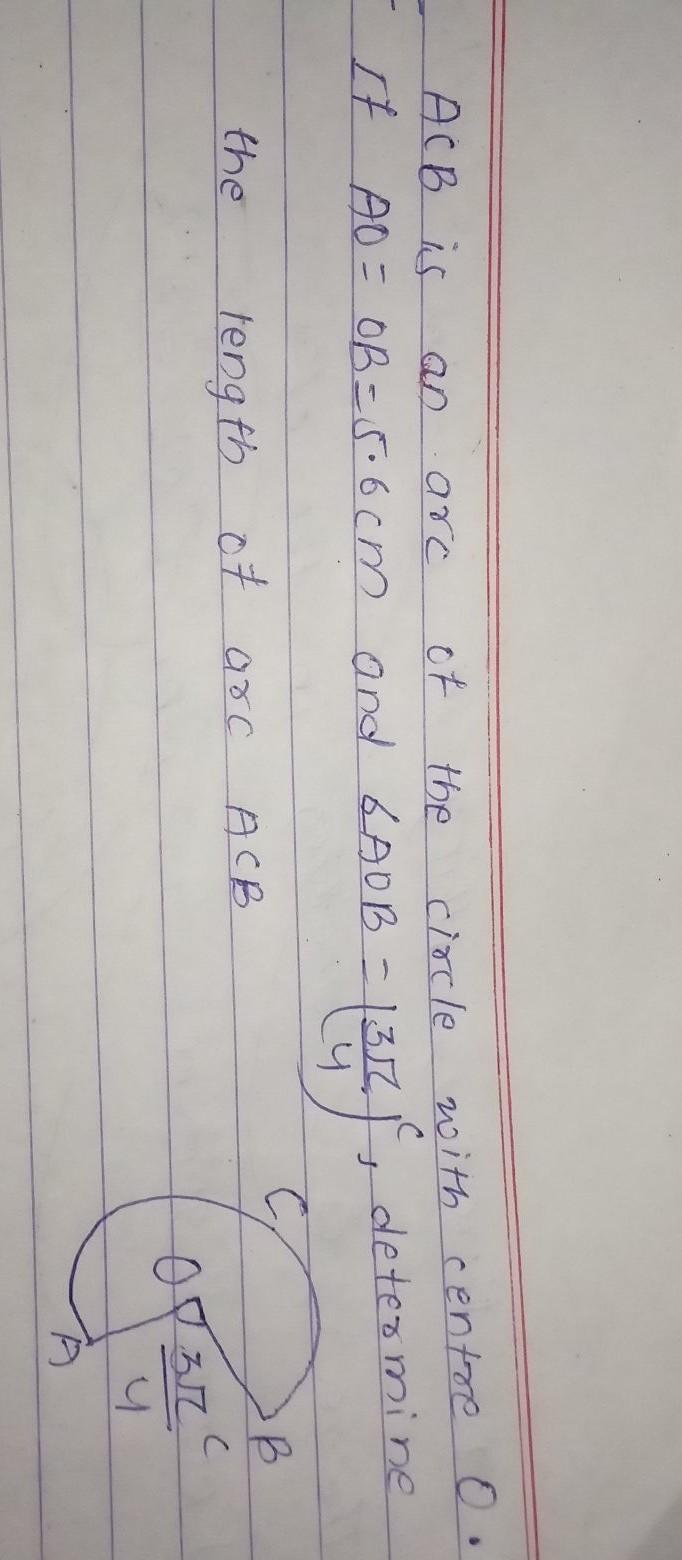 ACB is an arc of the circle with centre O.
If AO = OB = 5.6cm and ∠AOB = (3π/4)^c, determine
the length of arc ACB
C
B
O
3π^c/4
A